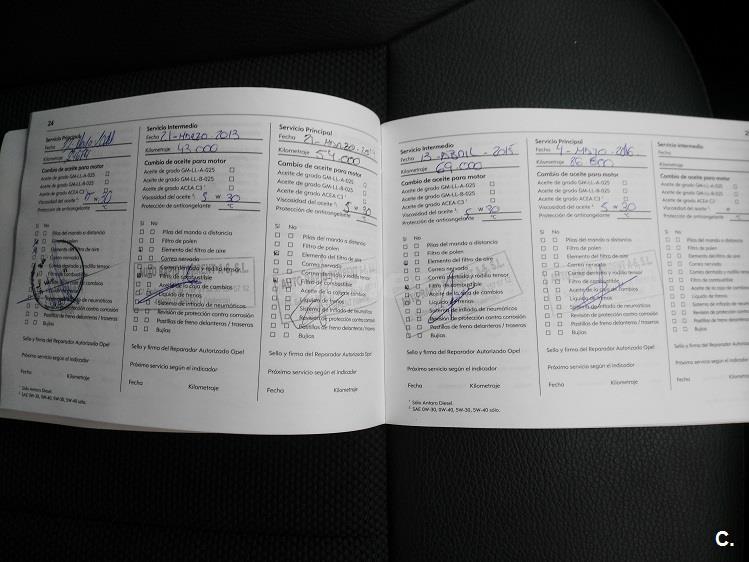 24
Servicio Principal
Fecha
Kilometraje
Cambio de aceite para motor
Aceite de grado GM-LL-A-025
Aceite de grado GM-LL-B-025
Aceite de grado ACEA C3
Viscosidad del aceite W 30
Protección de anticongelante °C
Sí No
Bujías
Sello y firma del Reparador Autorizado Opel
Próximo servicio según el indicador
Fecha Kilometraje
Sólo Antara Diesel.
SAE 0W-30, 0W-40, 5W-30, 5W-40 sólo.
Servicio Intermedio
Fecha 21-MARZO-2013
Kilometraje 43.000
Cambio de aceite para motor
Aceite de grado GM-LL-A-025
Aceite de grado GM-LL-B-025
Aceite de grado ACEA C3
Viscosidad del aceite 5 W 30
Protección de anticongelante °C
Sí No
Pilas del mando a distancia
Filtro de polen
Elemento del filtro de aire
Correa nervada
Correa dentada y rodillo tensor
Filtro de combustible
Aceite de la caja de cambios
Líquido de frenos
Sistema de inflado de neumáticos
Revisión de protección contra corrosión
Pastillas de freno delanteras / traseras
Bujías
Sello y firma del Reparador Autorizado Opel
Próximo servicio según el indicador
Fecha Kilometraje
Servicio Principal
Fecha 21-MARZO-
Kilometraje 54.000
Cambio de aceite para motor
Aceite de grado GM-LL-A-025
Aceite de grado GM-LL-B-025
Aceite de grado ACEA C3
Viscosidad del aceite 5 W 30
Protección de anticongelante °C
Sí No
Pilas del mando a distancia
Filtro de polen
Elemento del filtro de aire
Correa nervada
Correa dentada y rodillo tensor
Filtro de combustible
Aceite de la caja de cambios
Líquido de frenos
Sistema de inflado de neumáticos
Revisión de protección contra corrosión
Pastillas de freno delanteras / traseras
Bujías
Sello y firma del Reparador Autorizado Opel
Próximo servicio según el indicador
Fecha Kilometraje
Servicio Intermedio
Fecha 13-ABRIL-2015
Kilometraje 69.000
Cambio de aceite para motor
Aceite de grado GM-LL-A-025
Aceite de grado GM-LL-B-025
Aceite de grado ACEA C3
Viscosidad del aceite 5 W 30
Protección de anticongelante °C
Sí No
Pilas del mando a distancia
Filtro de polen
Elemento del filtro de aire
Correa nervada
Correa dentada y rodillo tensor
Filtro de combustible
Aceite de la caja de cambios
Líquido de frenos
Sistema de inflado de neumáticos
Revisión de protección contra corrosión
Pastillas de freno delanteras / traseras
Bujías
Sello y firma del Reparador Autorizado Opel
Próximo servicio según el indicador
Fecha Kilometraje
Sólo Antara Diesel.
SAE 0W-30, 0W-40, 5W-30, 5W-40 sólo.
Servicio Principal
Fecha 4-MAYO-2016
Kilometraje
Cambio de aceite para motor
Aceite de grado GM-LL-A-025
Aceite de grado GM-LL-B-025
Aceite de grado ACEA C3
Viscosidad del aceite 5 W 30
Protección de anticongelante °C
Sí No
Pilas del mando a distancia
Filtro de polen
Elemento del filtro de aire
Correa nervada
Correa dentada y rodillo tensor
Filtro de combustible
Aceite de la caja de cambios
Líquido de frenos
Sistema de inflado de neumáticos
Revisión de protección contra corrosión
Pastillas de freno delanteras / traseras
Bujías
Sello y firma del Reparador Autorizado Opel
Próximo servicio según el indicador
Fecha Kilometraje
Servicio Intermedio
Fecha
Kilometraje
Cambio de aceite para motor
Aceite de grado GM-LL-A-025
Aceite de grado GM-LL-B-025
Aceite de grado ACEA C3
Viscosidad del aceite
Protección de anticongelante
Sí No
Pilas del mando a distancia
Filtro de polen
Elemento del filtro de aire
Correa nervada
Correa dentada y rodillo
Filtro de combustible
Aceite de la caja de cambios
Líquido de frenos
Sistema de inflado de
Revisión de protección
Pastillas de freno
Bujías
Sello y firma del Reparador
Próximo servicio según el
Fecha
C.